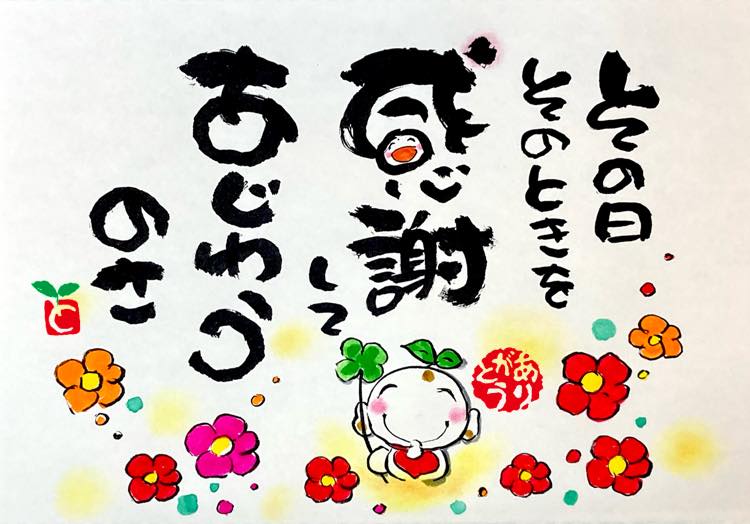 その日
そのときを
感謝
して
あじわう
のさ
ありがとう